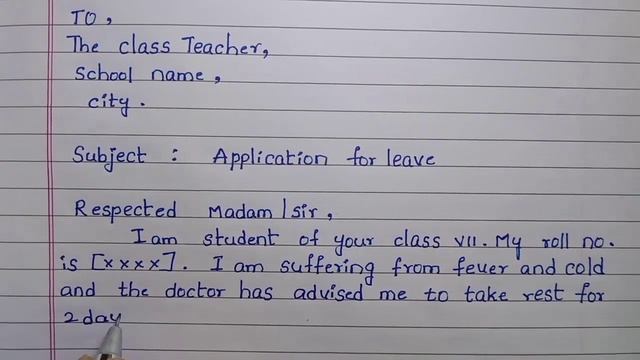 TO,
The class Teacher,
School name,
city.
Subject : Application for leave
Respected Madam/sir,
I am student of your class VII. My roll no.
is [xxxx]. I am suffering from fever and cold
and the doctor has advised me to take rest for
2 day